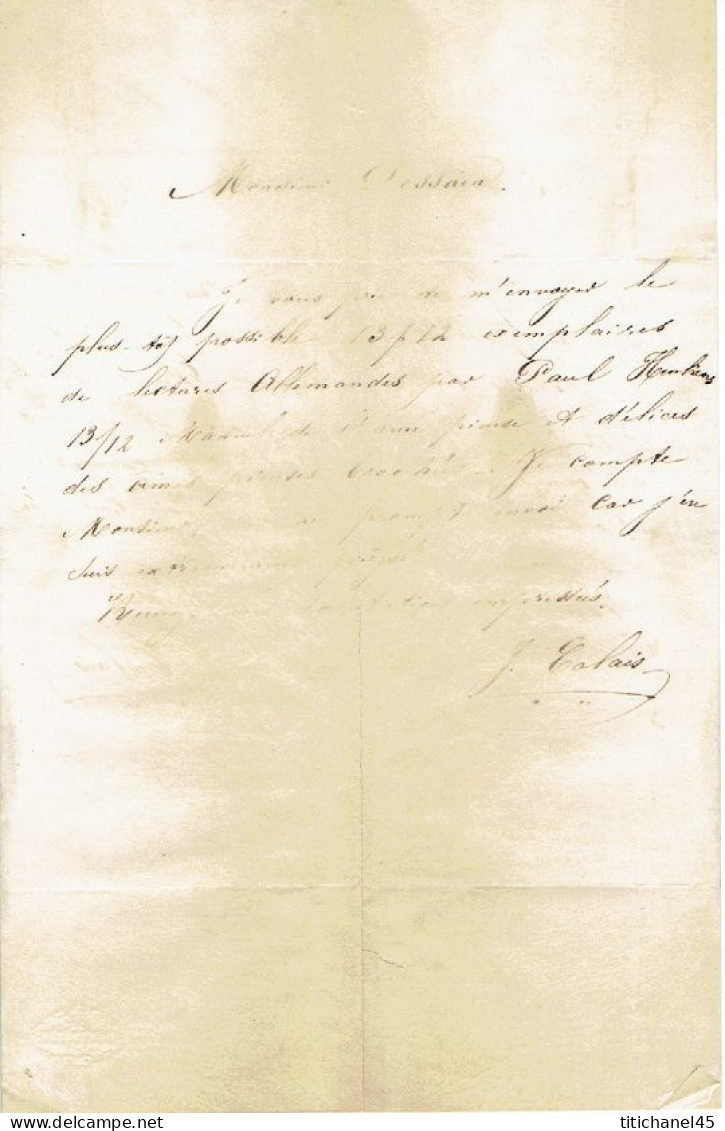 Monsieur Dessain.
Je vous prie de m'envoyer le
plus-tôt possible 13/12 exemplaires
de lectures Allemandes par Paul
13/12 Manuel de l'âme pieuse et délices
des âmes pieuses. Je compte
Monsieur, prompt envoi car j'en
suis extrêmement pressé.
empressées.
J. Calais
titichanel45